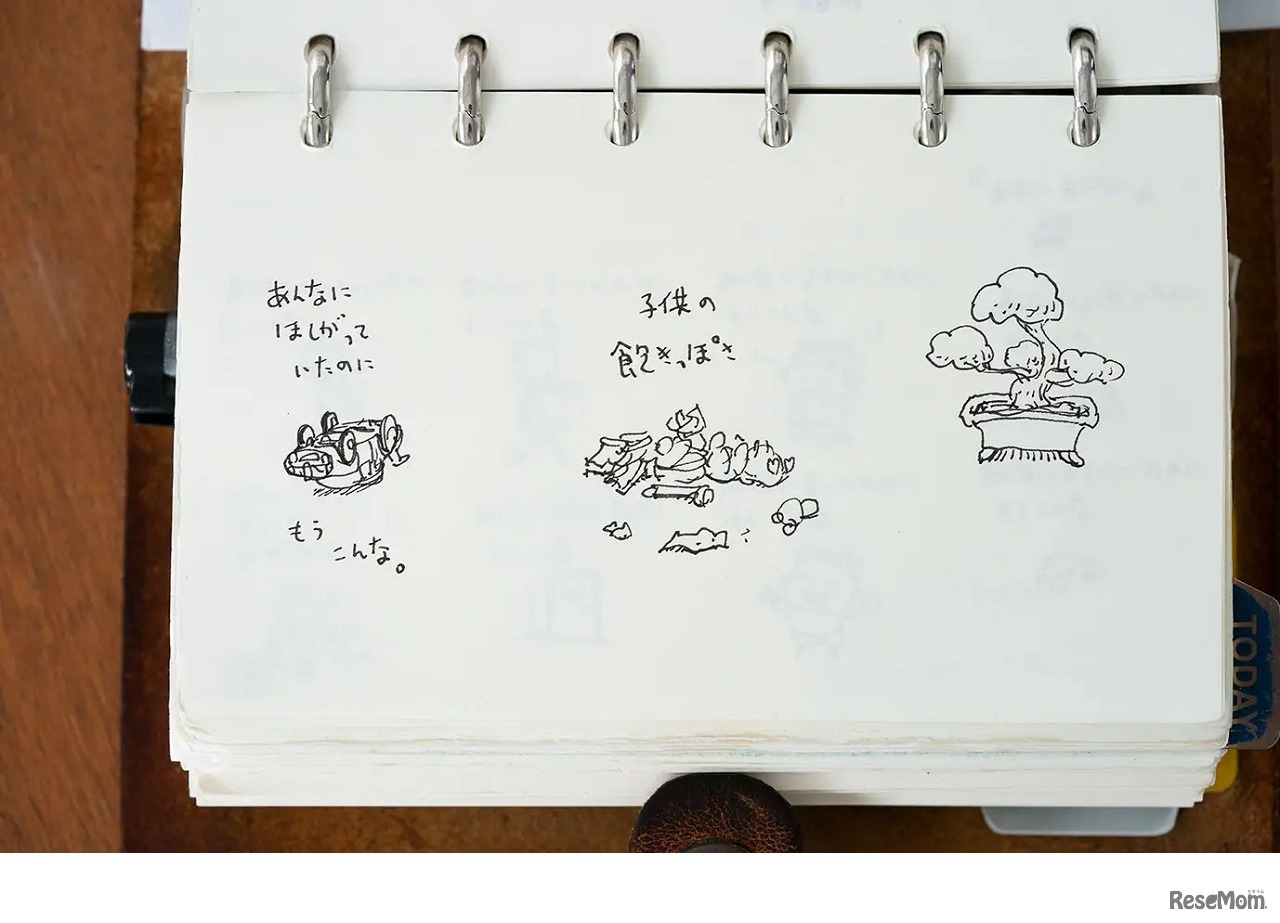 あんなに
ほしがって
いたのに
もう
こんな。
子供の
飽きっぽさ
TODAY
リセマム
ReseMom.